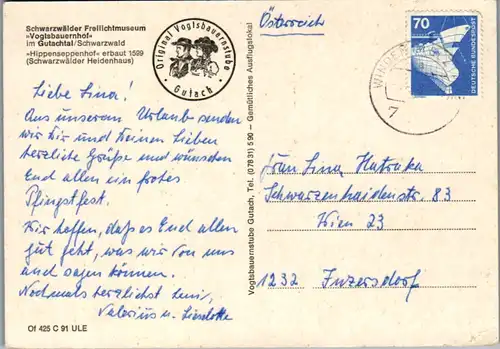 Schwarzwälder Freilichtmuseum
»Vogtsbauernhof«
im Gutachtal/Schwarzwald
»Hippenseppenhof« erbaut 1599
(Schwarzwälder Heidenhaus)
Original Vogtsbauernstube
Gutach
Österreich
70
DEUTSCHE BUNDESPOST
Liebe Lina!
Aus unserem Urlaube senden
wir Dir und Deinen Lieben
herzliche Grüße und wünschen
Euch allen ein frohes
Pfingstfest.
Wir hoffen, daß es Euch allen
gut geht, was wir von uns
auch sagen können.
Nochmals herzlichst Euere
Valerius u. Lieselotte
Vogtsbauernstube Gutach, Tel. (07831) 5 90 – Gemütliches Ausflugslokal
Frau Lina
Schwarzenhaidenstr. 83
Wien 23
1232 Inzersdorf
Of 425 C 91 ULE